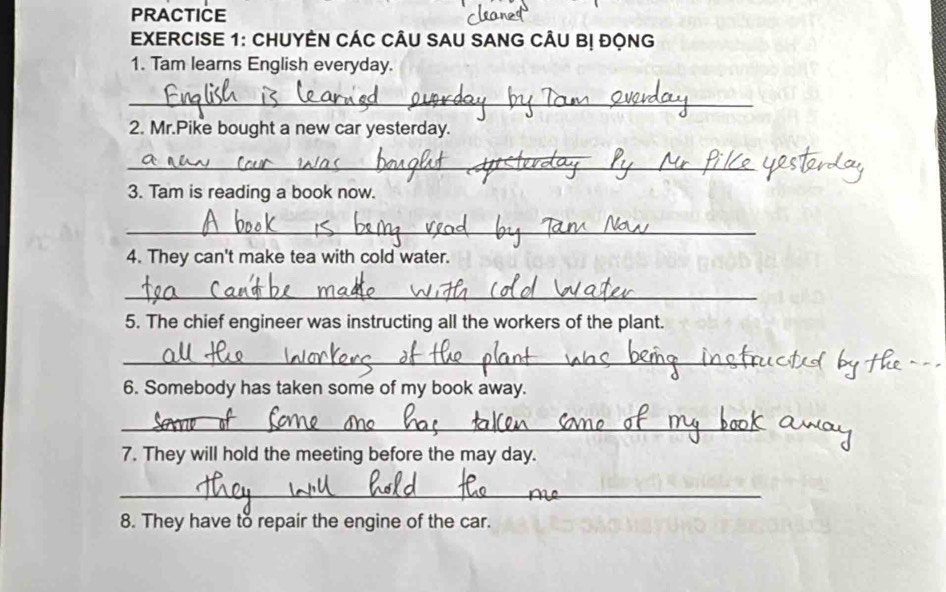 PRACTICE
cleaned
EXERCISE 1: CHUYÈN CÁC CÂU SAU SANG CÂU BỊ ĐỌNG
1. Tam learns English everyday.
English is learnied everday by Tam everday
2. Mr.Pike bought a new car yesterday.
a new car was bought yesterday By Mr Pike yesterday
3. Tam is reading a book now.
A book is being read by Tam Now
4. They can't make tea with cold water.
tea can't be made with cold water
5. The chief engineer was instructing all the workers of the plant.
all the workers of the plant was being instructed by the ...
6. Somebody has taken some of my book away.
Some of Some one has taken some of my book away
7. They will hold the meeting before the may day.
they will hold the me
8. They have to repair the engine of the car.